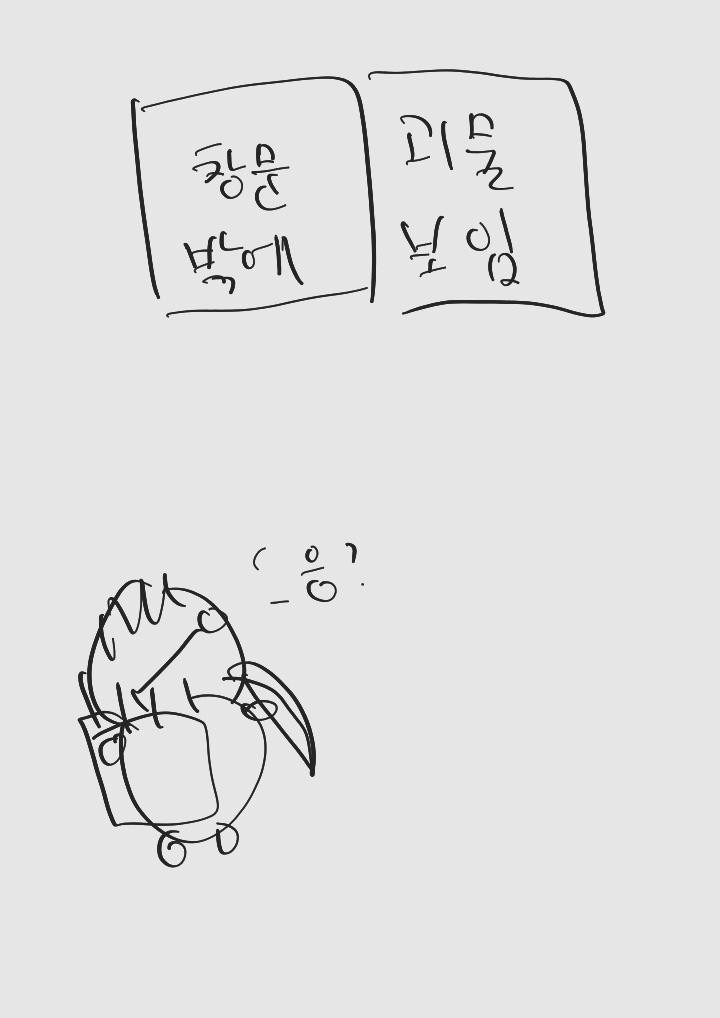 창문
밖에
괴물
보임
응?